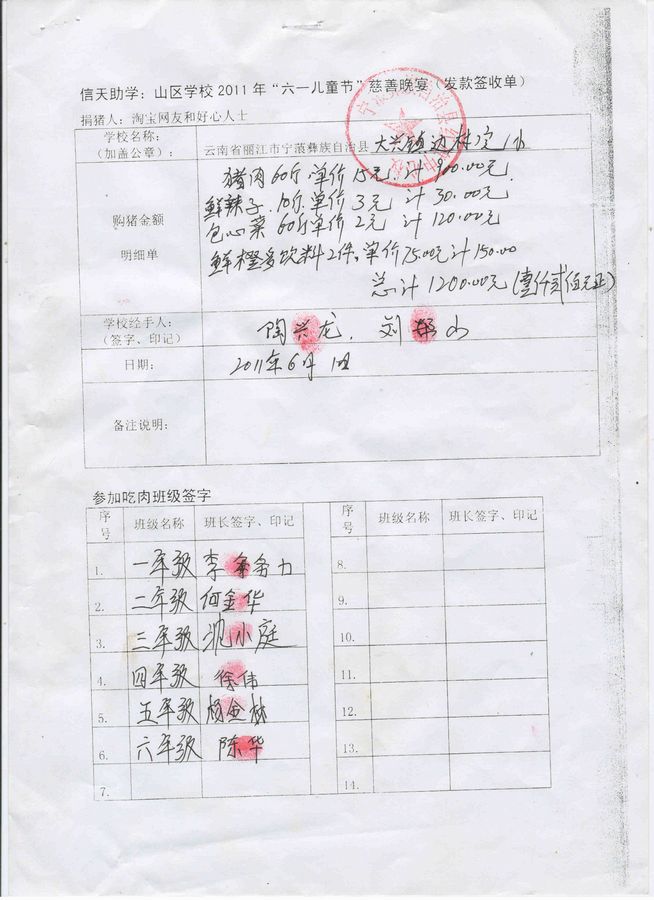 信天助学：山区学校2011年“六一儿童节”慈善晚宴（发款签收单）
捐猪人：淘宝网友和好心人士
学校名称：
（加盖公章）：
云南省丽江市宁蒗彝族自治县 大兴镇边林完小
购猪金额
明细单
猪肉60斤.单价15元.计900.00元.
鲜辣子.10斤.单价3元 计30.00元
包心菜60斤单价2元 计120.00元
鲜橙多饮料2件,单价75.00元计150.00
总计1200.00元(壹仟贰佰元正)
学校经手人：
（签字、印记）
陶兴龙. 刘 山
日期：
2011年6月1日
备注说明：
参加吃肉班级签字
序号 班级名称 班长签字、印记 序号 班级名称 班长签字、印记
1. 一年级 李 务力 8.
2. 二年级 何金华 9.
3. 三年级 小庭 10.
4. 四年级 徐伟 11.
5. 五年级 杨金林 12.
6. 六年级 陈华 13.
7. 14.